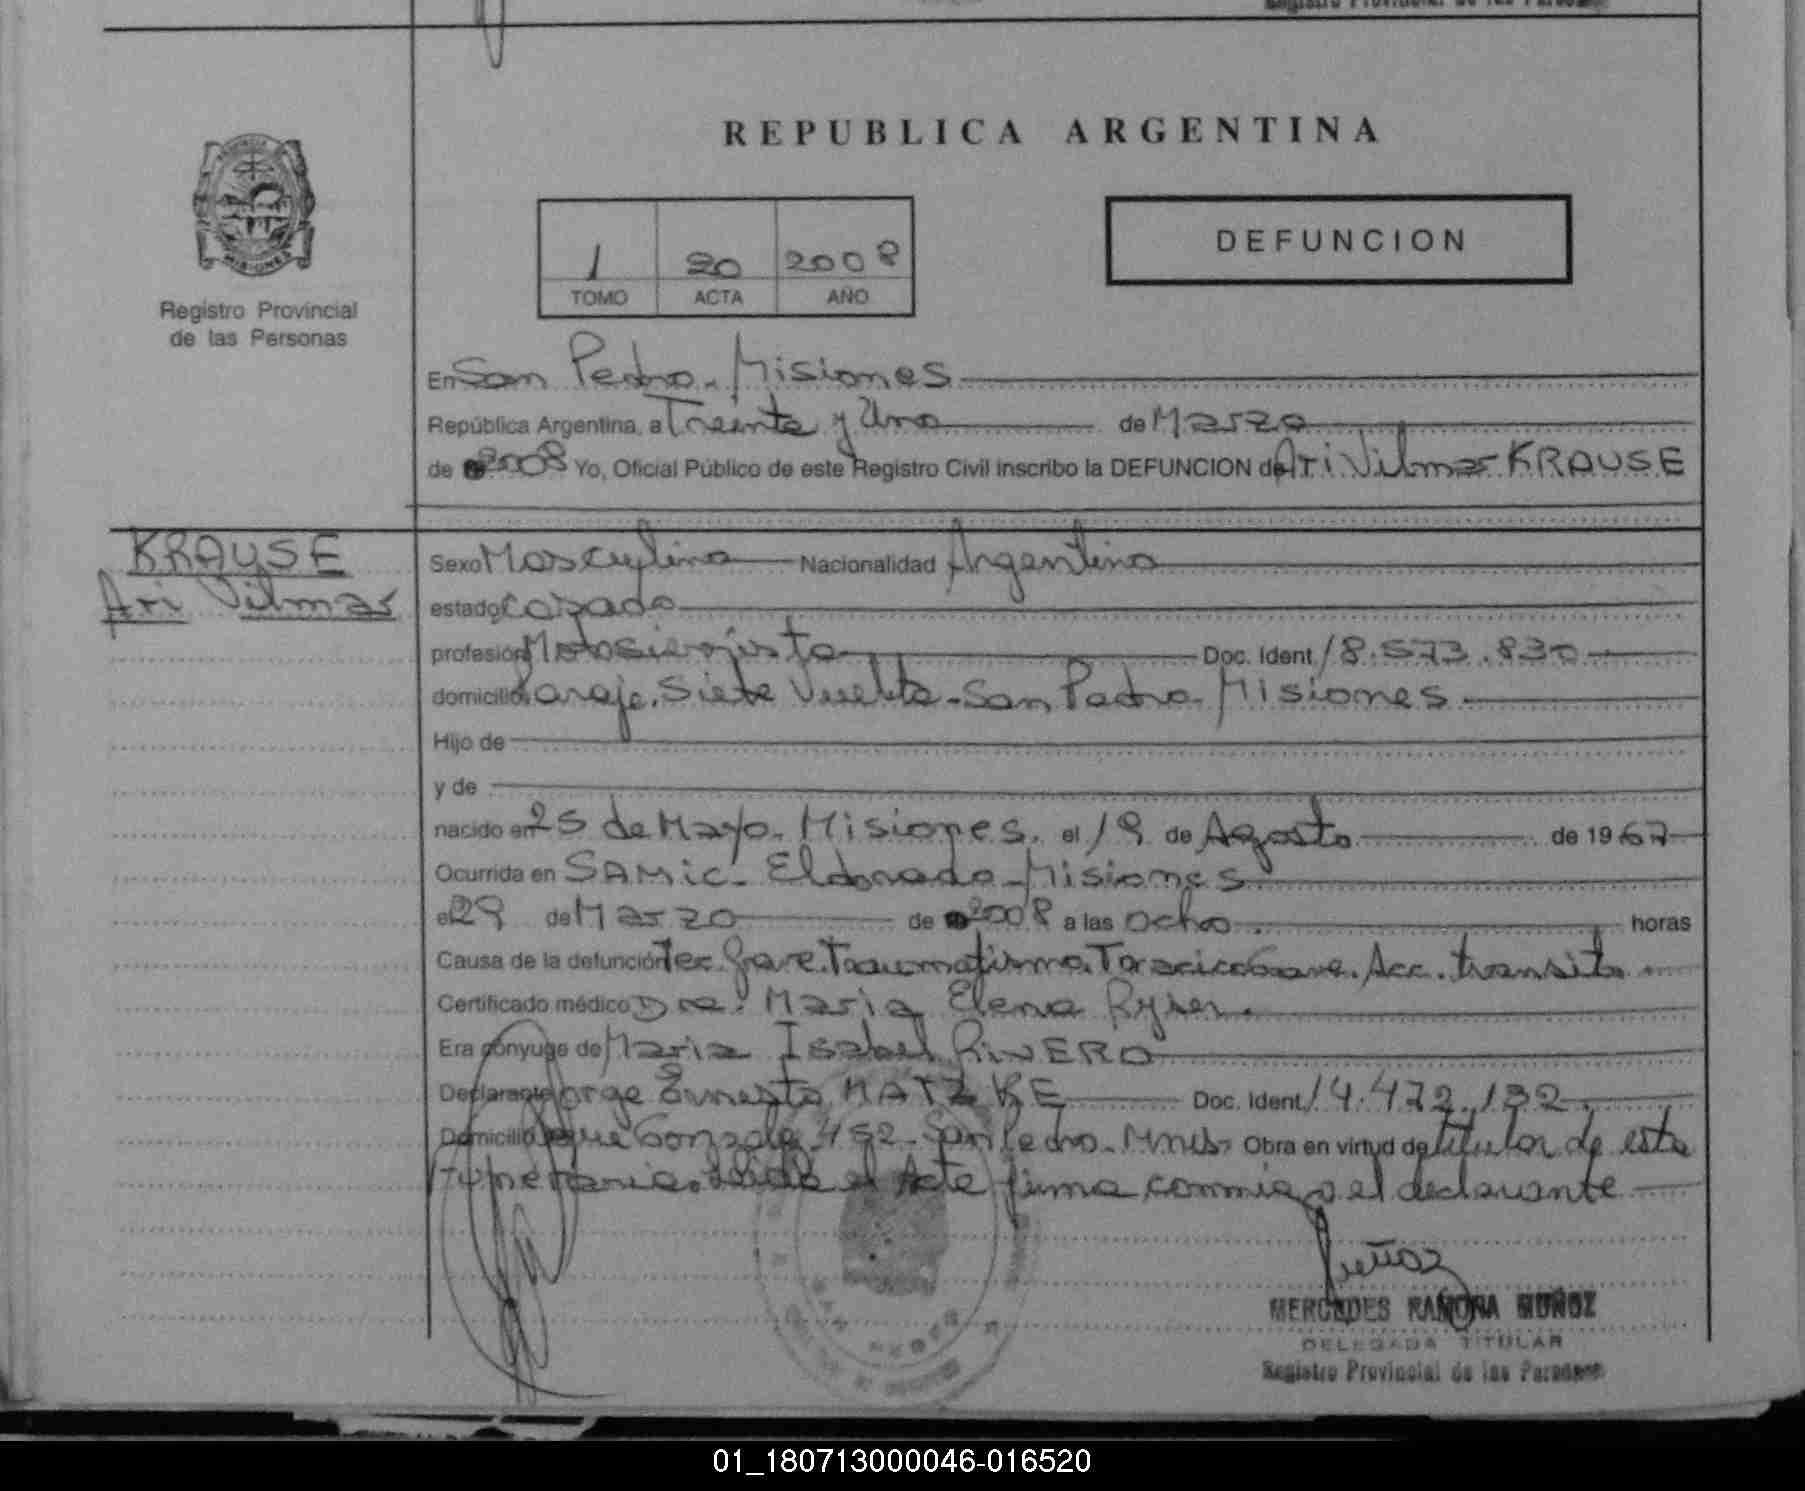 REPUBLICA ARGENTINA
DEFUNCION
1 20 2008
TOMO ACTA AÑO
Registro Provincial
de las Personas
En San Pedro. Misiones
República Argentina, a Treinta y Uno de Marzo
de 2008 Yo, Oficial Público de este Registro Civil inscribo la DEFUNCION de Ari Vilmar KRAUSE
KRAUSE
Ari Vilmar
Sexo Masculino Nacionalidad Argentina
estado Casado
profesión Motosierrista Doc. Ident. 18.573.830
domicilio Paraje. Siete Vuelta - San Pedro. Misiones
Hijo de
y de
nacido en 25 de Mayo. Misiones. el 19 de Agosto de 1967
Ocurrida en SAMic - Eldorado - Misiones
el 29 de Marzo de 2008 a las ocho. horas
Causa de la defunción Tec. Grave. Traumatismo Toracico Grave. Acc. transito
Certificado médico Dra. Maria Elena Ryser.
Era cónyuge de Maria Isabel RiVERO
Declarante Jorge Ernesto MATZKE Doc. Ident. 14.472.132.
Domicilio Roque Gonzalez 452 - San Pedro - Mnes Obra en virtud de titular de esta
funeraria. Leida el Acta firma conmigo el declarante
MERCEDES RAMONA MUÑOZ
DELEGADA TITULAR
Registro Provincial de las Personas
01_180713000046-016520